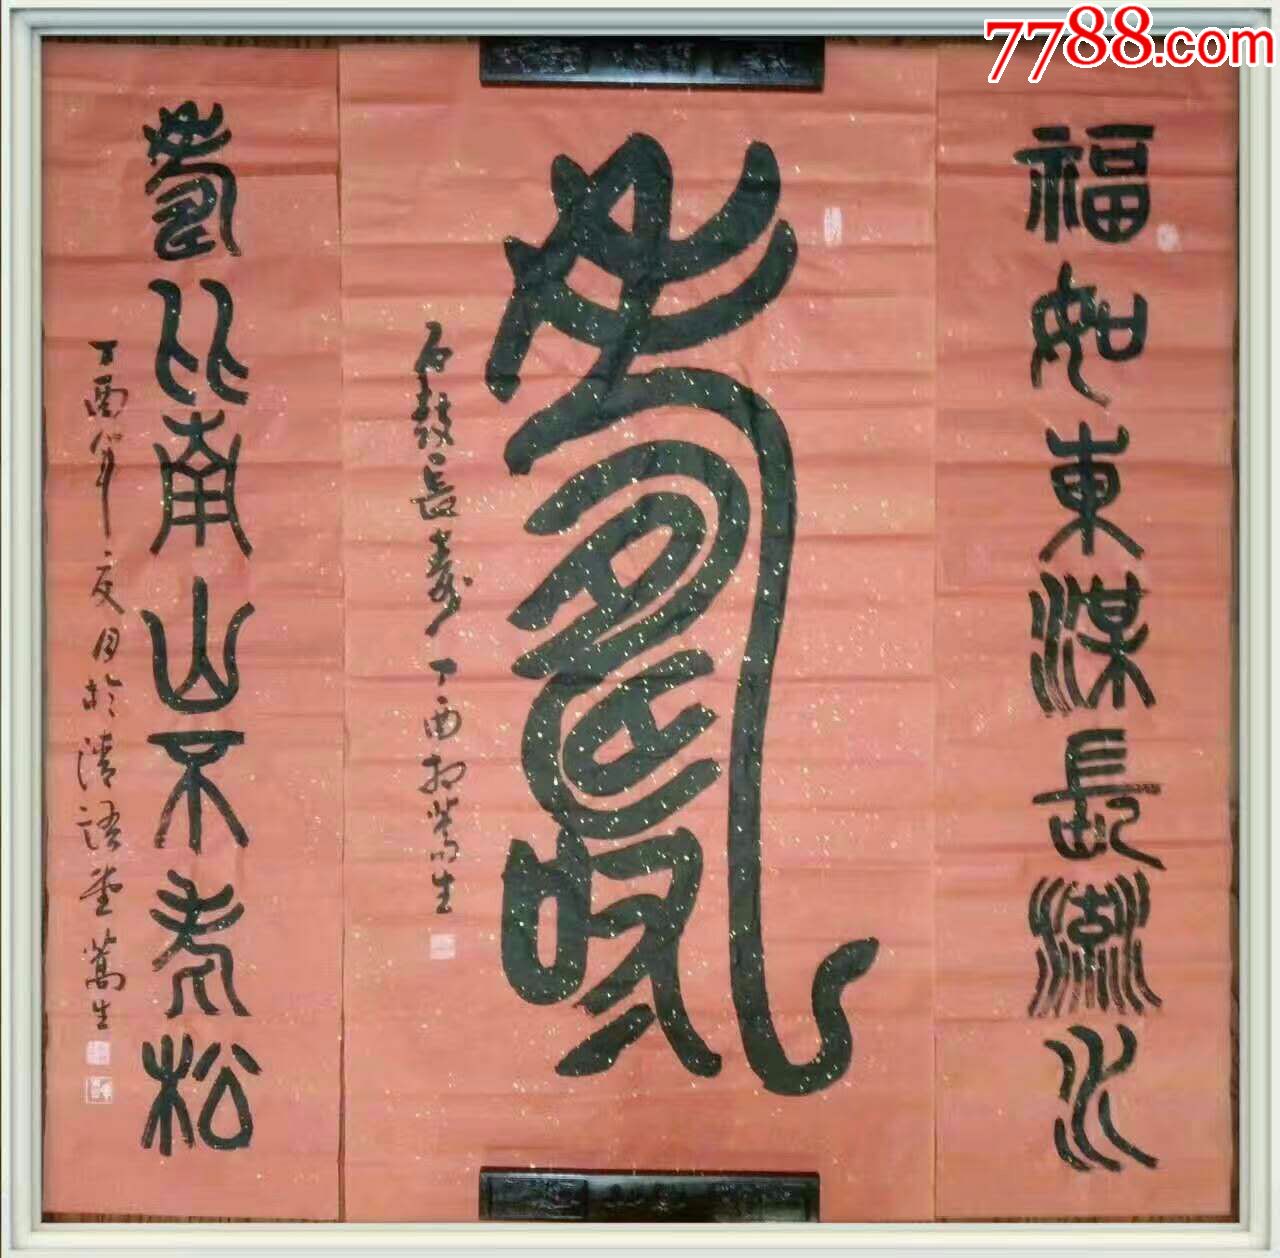 7788.com
福如東海長流水
壽
石鼓長壽 丁酉 萬生
壽比南山不老松
丁酉年夏月於清語堂萬生